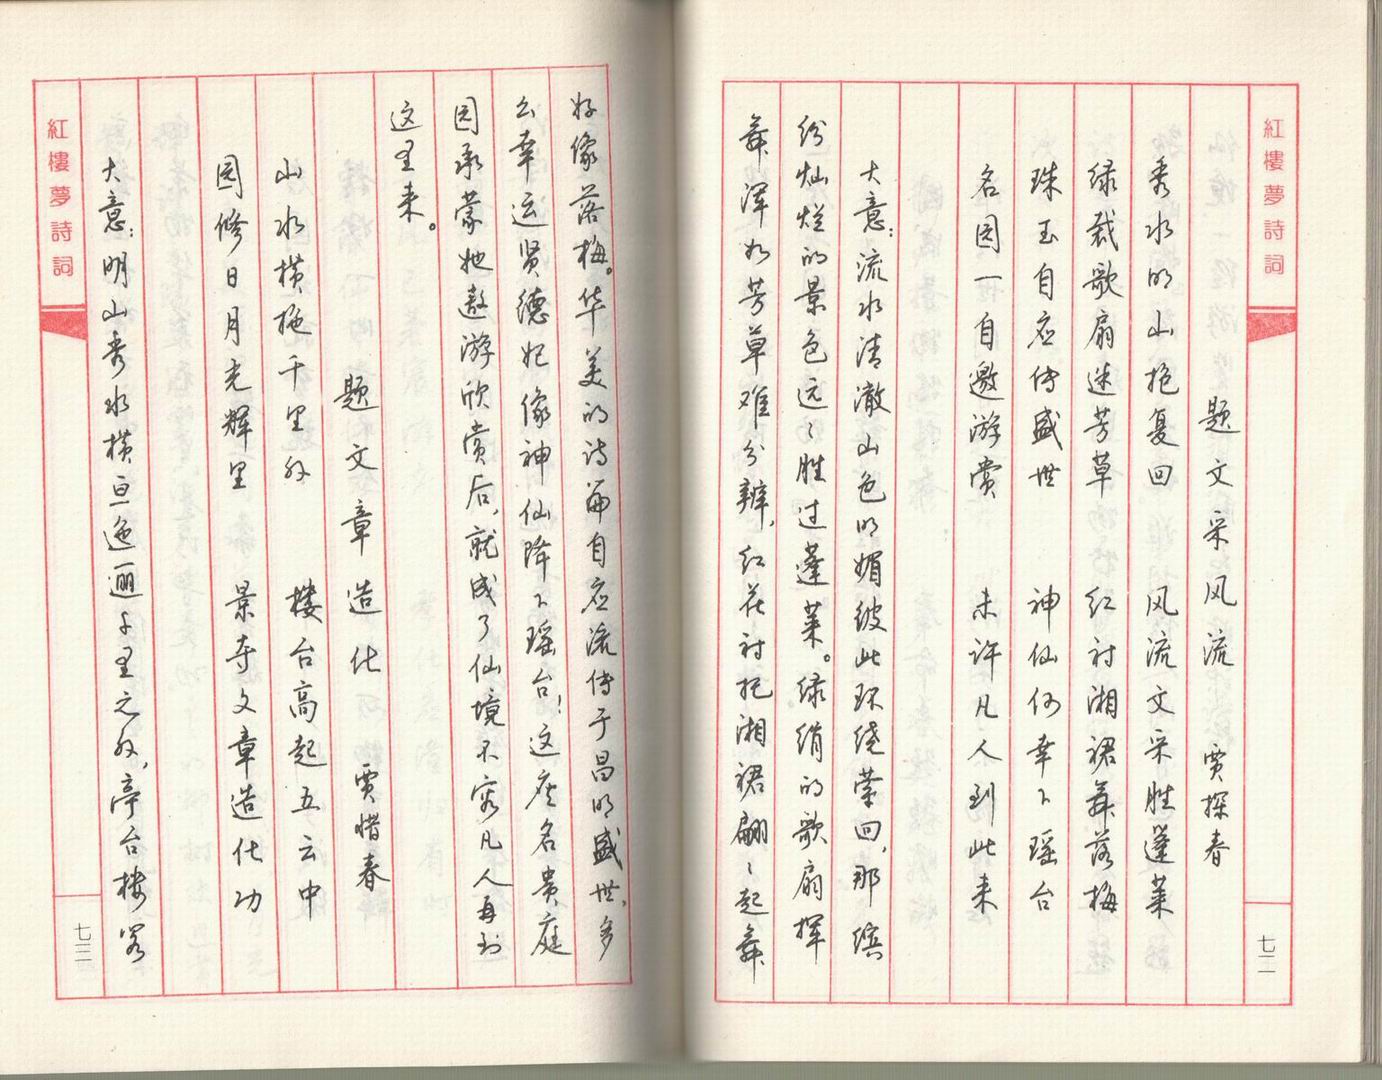 紅樓夢詩詞
七二
题文采风流 贾探春
秀水明山抱复回 风流文采胜蓬莱
绿裁歌扇迷芳草 红衬湘裙舞落梅
珠玉自应传盛世 神仙何幸下瑶台
名园一自邀游赏 未许凡人到此来
大意:流水清澈山色明媚彼此环绕萦回,那缤
纷灿烂的景色远〻胜过蓬莱。绿绡的歌扇挥
舞浑如芳草难分辨,红花衬托湘裙翩〻起舞
好像落梅。华美的诗篇自应流传于昌明盛世,多
么幸运贤德妃像神仙降下瑶台!这座名贵庭
园承蒙她遨游欣赏后,就成了仙境不容凡人再到
这里来。
题文章造化 贾惜春
山水横拖千里外 楼台高起五云中
园修日月光辉里 景夺文章造化功
大意:明山秀水横亘迤逦千里之外,亭台楼阁
紅樓夢詩詞
七三